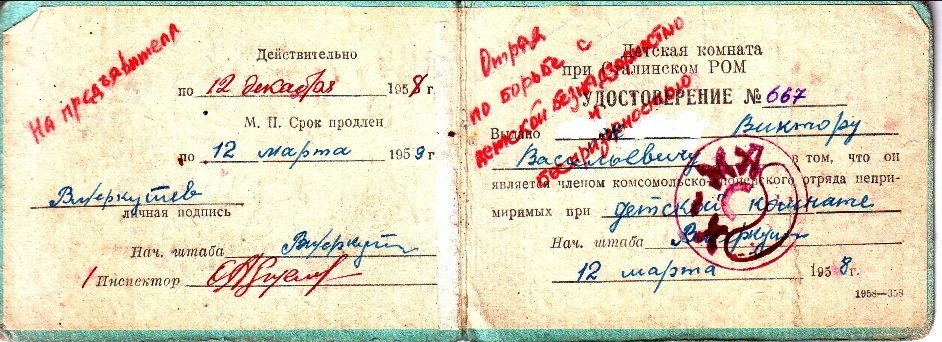 На предъявителя
Действительно
по 12 декабря 1958 г.
М. П. Срок продлен
по 12 марта 1959 г.
личная подпись
Нач. штаба
Инспектор
Отряд
по борьбе с
детской безнадзорностью
и
беспризорностью
Детская комната
при Сталинском РОМ
УДОСТОВЕРЕНИЕ № 667
Выдано Виктору
Васильевичу в том, что он
является членом комсомольско-пионерского отряда непри-
миримых при детской комнате
Нач. штаба
12 марта 1958 г.
1958—358